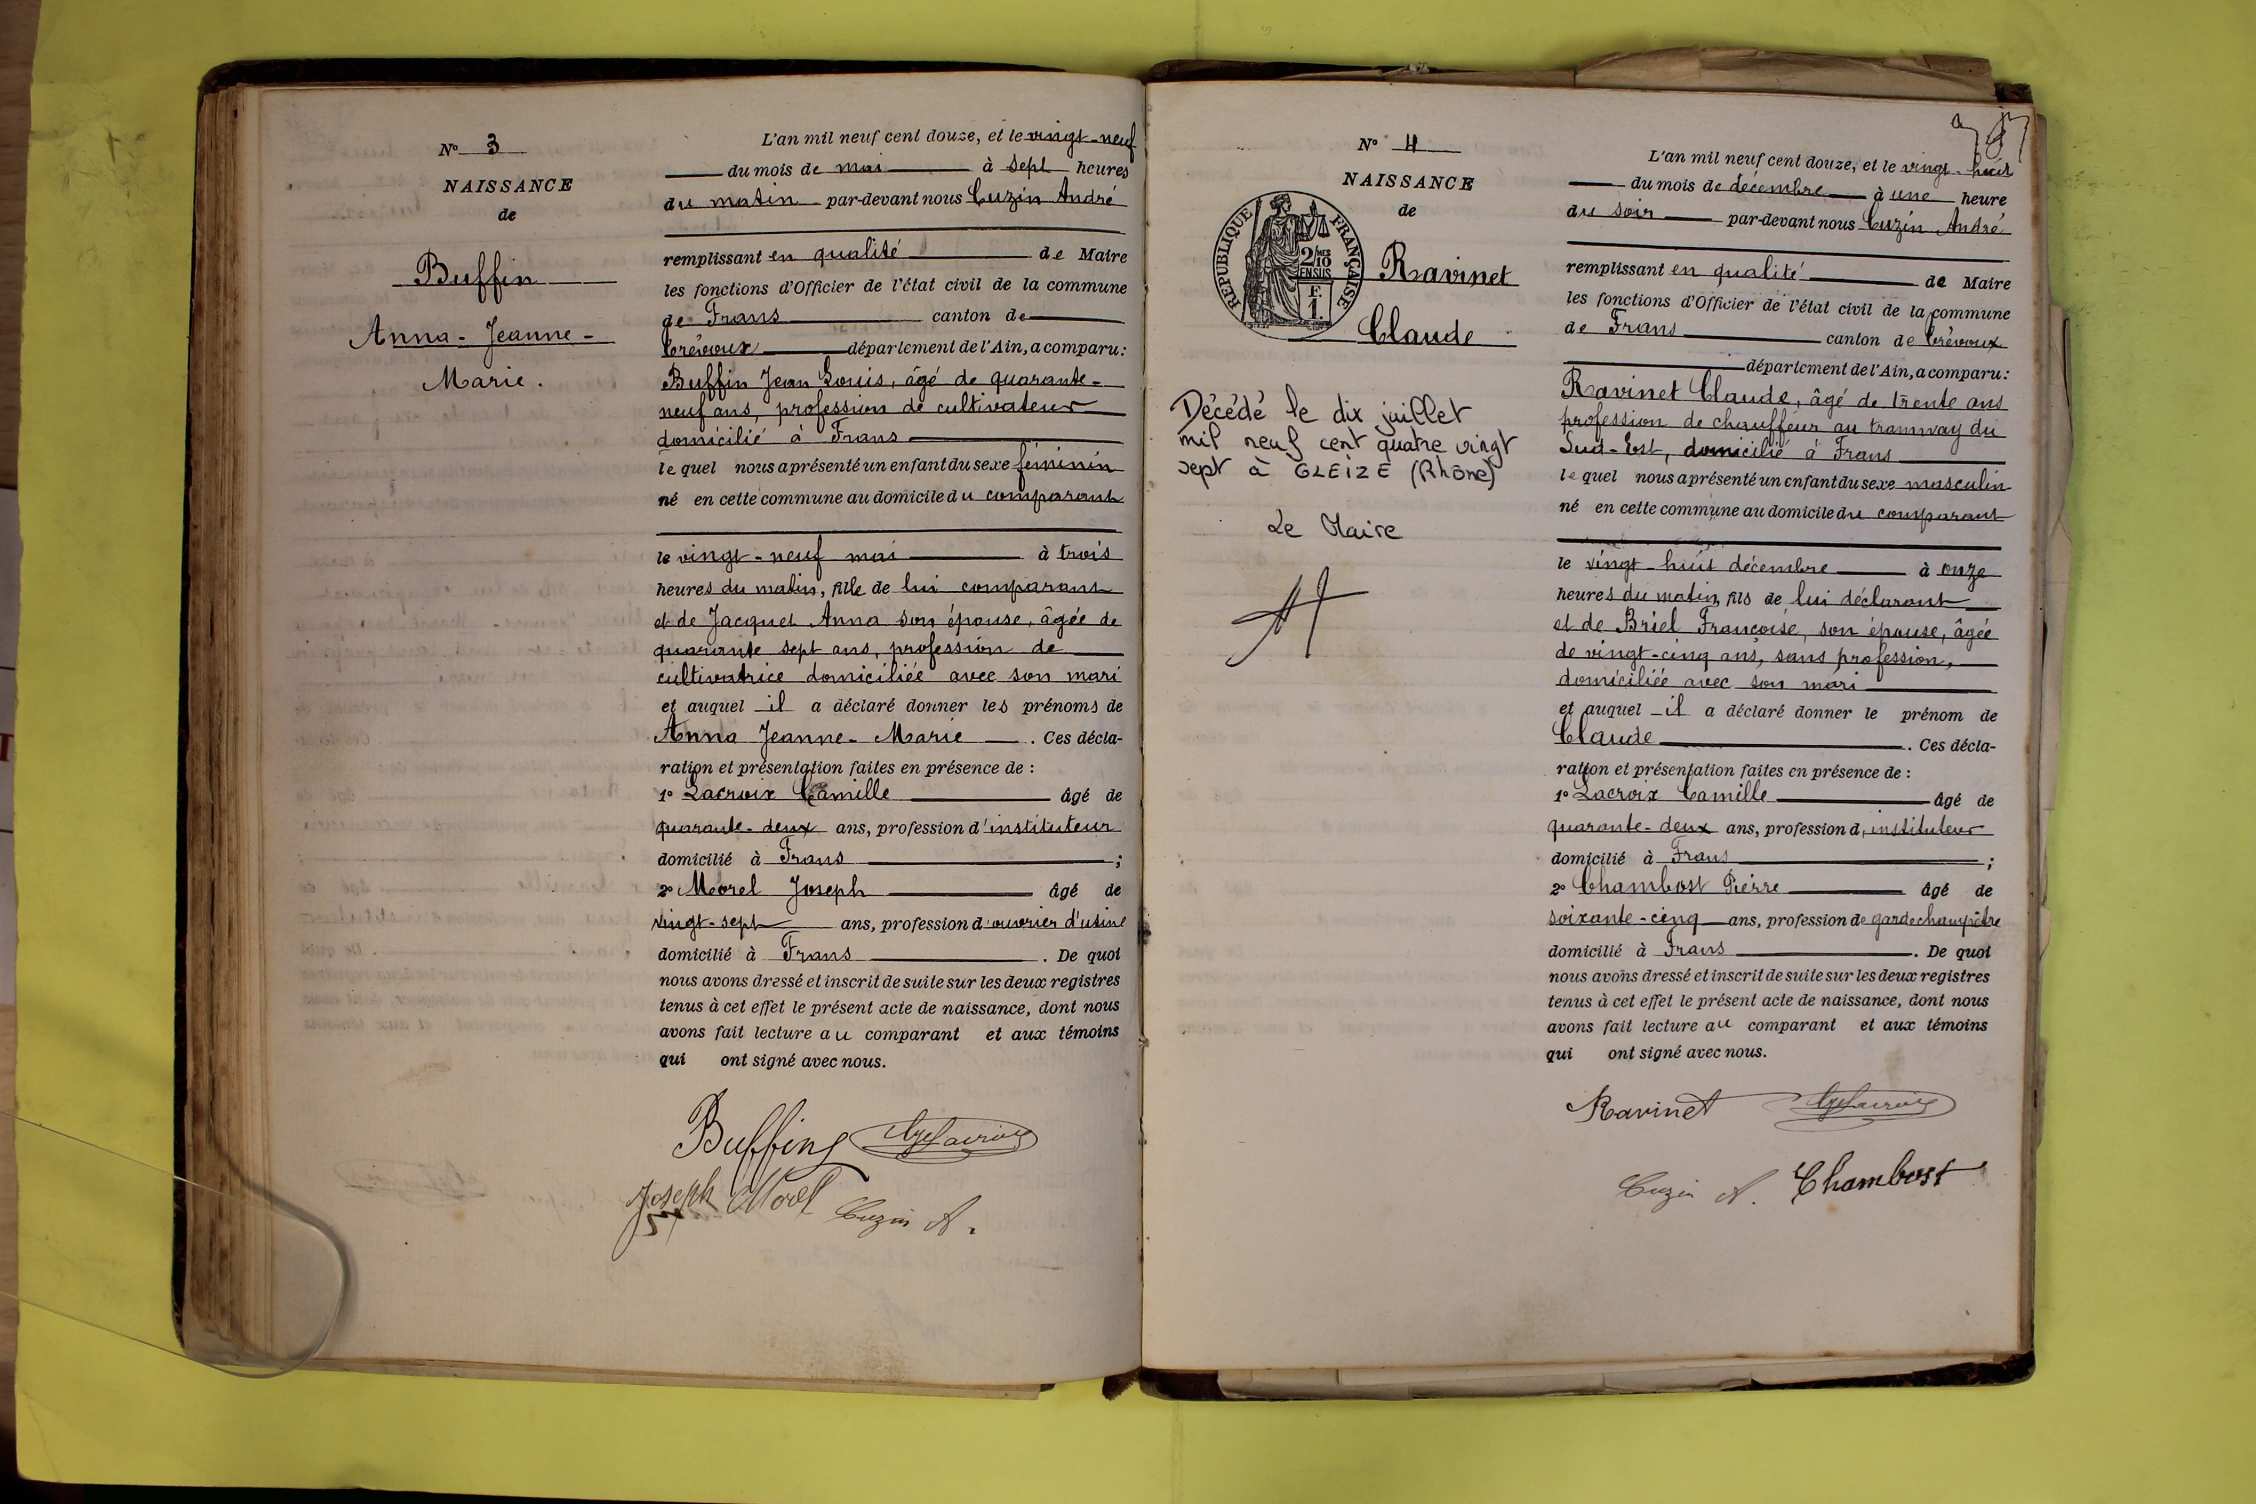 N° 3
NAISSANCE
de
Buffin
Anna-Jeanne-
Marie.
L'an mil neuf cent douze, et le vingt-neuf
du mois de mai à sept heures
du matin par-devant nous Cuzin André
remplissant en qualité de Maire
les fonctions d'Officier de l'état civil de la commune
de Frans canton de
Trévoux département de l'Ain, a comparu:
Buffin Jean Louis, âgé de quarante-
neuf ans, profession de cultivateur
domicilié à Frans
lequel nous a présenté un enfant du sexe féminin
né en cette commune au domicile du comparant
le vingt-neuf mai à trois
heures du matin, fille de lui comparant
et de Jacquet Anna son épouse, âgée de
quarante sept ans, profession de
cultivatrice domiciliée avec son mari
et auquel il a déclaré donner les prénoms de
Anna Jeanne-Marie. Ces décla-
ration et présentation faites en présence de :
1° Lacroix Camille âgé de
quarante-deux ans, profession d'instituteur
domicilié à Frans ;
2° Morel Joseph âgé de
vingt-sept ans, profession d'ouvrier d'usine
domicilié à Frans. De quoi
nous avons dressé et inscrit de suite sur les deux registres
tenus à cet effet le présent acte de naissance, dont nous
avons fait lecture au comparant et aux témoins
qui ont signé avec nous.
Buffin
Lacroix
Joseph Morel
Cuzin A.
N° 4
NAISSANCE
de
RÉPUBLIQUE FRANÇAISE
2/10
EN SUS
F.
1.
Ravinet
Claude
Décédé le dix juillet
mil neuf cent quatre vingt
sept à GLEIZE (Rhône)
Le Maire
L'an mil neuf cent douze, et le vingt-huit
du mois de décembre à une heure
du soir par-devant nous Cuzin André
remplissant en qualité de Maire
les fonctions d'Officier de l'état civil de la commune
de Frans canton de Trévoux
département de l'Ain, a comparu:
Ravinet Claude, âgé de trente ans
profession de chauffeur au tramway du
Sud-Est, domicilié à Frans
lequel nous a présenté un enfant du sexe masculin
né en cette commune au domicile du comparant
le vingt-huit décembre à onze
heures du matin, fils de lui déclarant
et de Briel Françoise, son épouse, âgée
de vingt-cinq ans, sans profession,
domiciliée avec son mari
et auquel il a déclaré donner le prénom de
Claude. Ces décla-
ration et présentation faites en présence de :
1° Lacroix Camille âgé de
quarante-deux ans, profession d'instituteur
domicilié à Frans ;
2° Chambost Pierre âgé de
soixante-cinq ans, profession de garde champêtre
domicilié à Frans. De quoi
nous avons dressé et inscrit de suite sur les deux registres
tenus à cet effet le présent acte de naissance, dont nous
avons fait lecture au comparant et aux témoins
qui ont signé avec nous.
Ravinet
Lacroix
Cuzin A.
Chambost